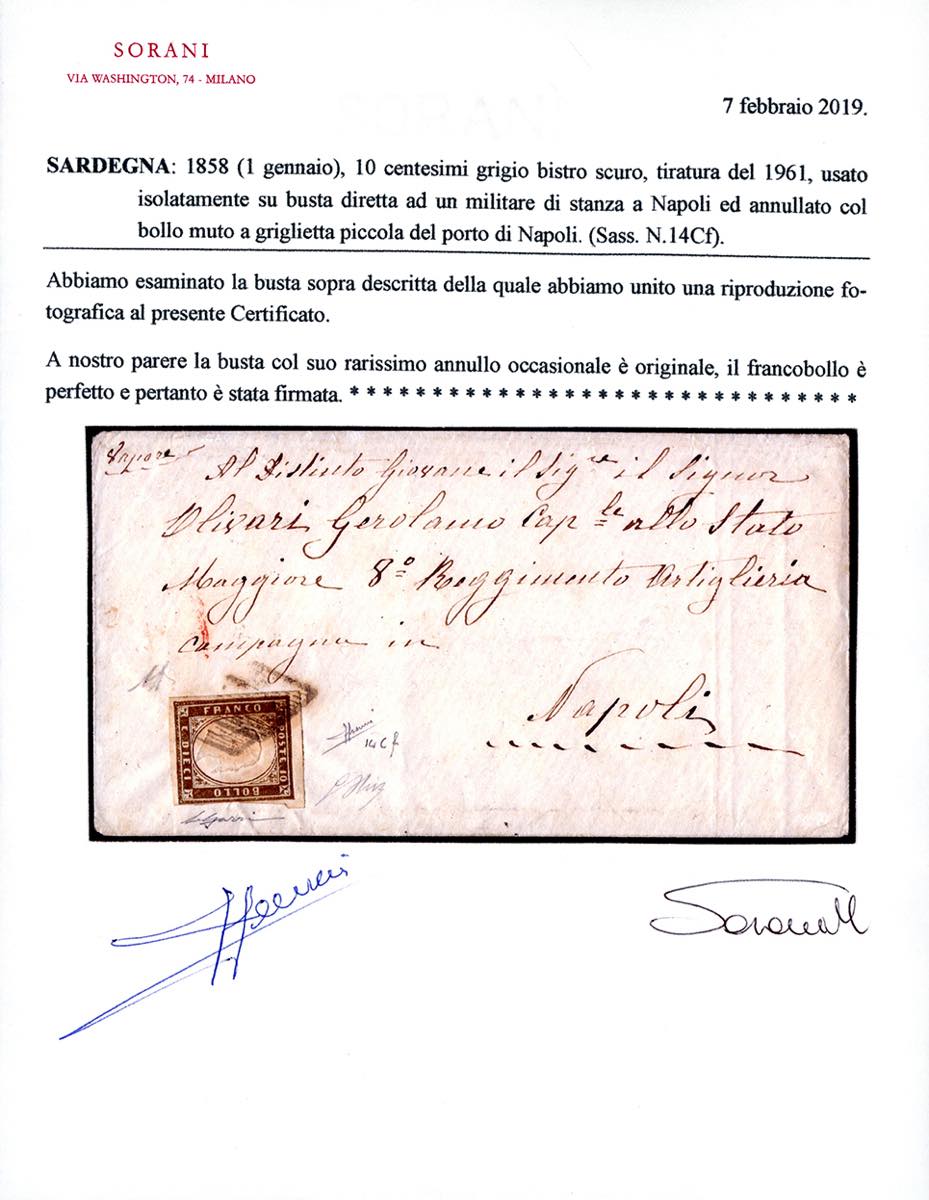 SORANI
VIA WASHINGTON, 74 - MILANO
7 febbraio 2019.
SARDEGNA: 1858 (1 gennaio), 10 centesimi grigio bistro scuro, tiratura del 1961, usato
isolatamente su busta diretta ad un militare di stanza a Napoli ed annullato col
bollo muto a griglietta piccola del porto di Napoli. (Sass. N.14Cf).
Abbiamo esaminato la busta sopra descritta della quale abbiamo unito una riproduzione fo-
tografica al presente Certificato.
A nostro parere la busta col suo rarissimo annullo occasionale è originale, il francobollo è
perfetto e pertanto è stata firmata. * * * * * * * * * * * * * * * * * * * * * * * * * * * * * * *
Vapore
Al Distinto Giovane il Sigre il Signor
Olivari Gerolamo Caple allo Stato
Maggiore 8º Reggimento Artiglieria
campagna in
Napoli
FRANCO
POSTE 10
BOLLO
C. DIECI
14Cf